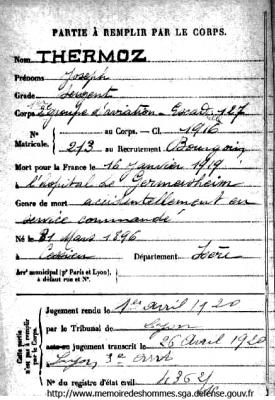 PARTIE À REMPLIR PAR LE CORPS.
Nom THERMOZ
Prénoms Joseph
Grade Sergent
Corps groupe d'aviation - Escad. 127
N° au Corps. — Cl. 1916
Matricule. 213 au Recrutement Bourgoin
Mort pour la France le 16 Janvier 1919
à l'hôpital de Germersheim
Genre de mort accidentellement en
service commandé
Né le 31 Mars 1896
à Département Isère
Arr¹ municipal (p¹ Paris et Lyon),
à défaut rue et N°.
Cette partie
n'est pas à remplir
par le Corps.
Jugement rendu le 1er avril 1920
par le Tribunal de Lyon
acte ou jugement transcrit le 26 Avril 1920
Lyon 3e arrt
N° du registre d'état civil
http://www.memoiredeshommes.sga.defense.gouv.fr